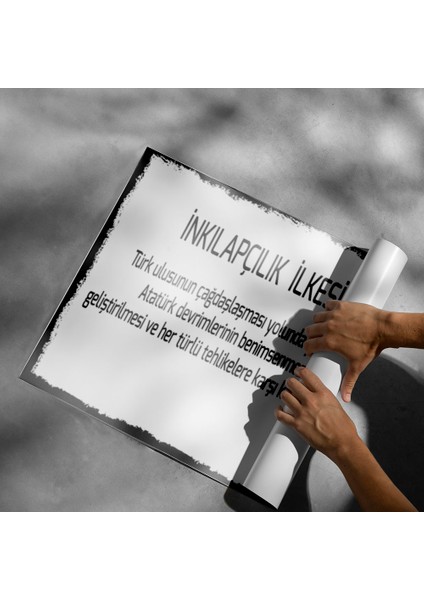 İNKILAPÇILIK İLKESİ
Türk ulusunun çağdaşlaşması yolunda
Atatürk devrimlerinin
geliştirilmesi ve her türlü tehlikelere karşı